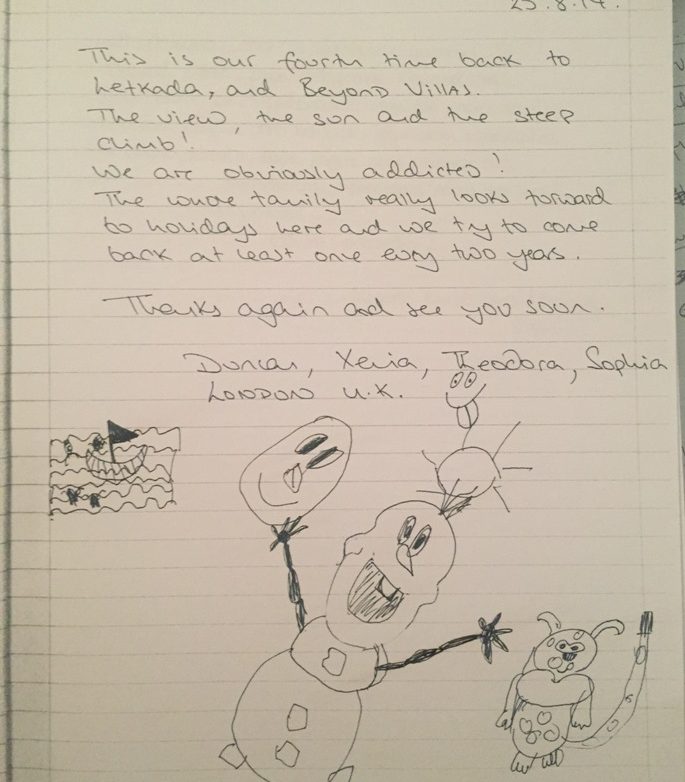 25.8.14.
This is our fourth time back to
Lefkada, and Beyond Villas.
The view, the sun and the steep
climb!
We are obviously addicted!
The whole family really looks forward
to holidays here and we try to come
back at least once every two years.
Thanks again and see you soon.
Duncan, Xenia, Theodora, Sophia
London U.K.